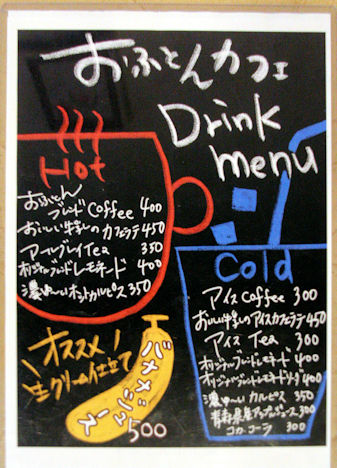 おふとんカフェ
Drink
menu
Hot
おふとん
ブレンドCoffee 400
おいしい牛乳のカフェラテ 450
アールグレイTea 350
オリジナルブレンドレモネード 400
濃ゆ〜いホットカルピス 350
Cold
アイスCoffee 300
おいしい牛乳のアイスカフェラテ 450
アイス Tea 300
オリジナルブレンドレモネード 400
オリジナルブレンドレモネードソーダ 450
濃ゆ〜い カルピス 350
青森県産アップルジュース 300
コカ・コーラ 300
オススメ
生クリーム仕立て
バナナジュース
500